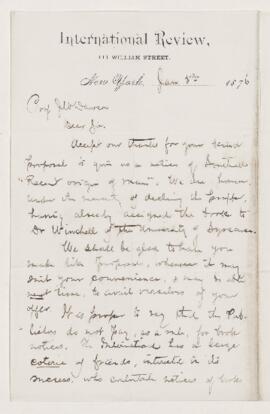 International Review,
111 WILLIAM STREET.
New York, Jan 8th 1876
Prof J W Dawson
Dear Sir,
Accept our thanks for your kind
proposal to give us a notice of Southall's
Recent origin of man". We are, however,
under the necessity of declining the proffer,
having already assigned the book to
Dr Winchell of the University of Syracuse.
We shall be glad to have you
make like proposal, whenever it may
suit your convenience, & may be able
next time, to avail ourselves of your
offer. It is proper to say that the Pub-
lishers do not pay, as a rule, for book
notices. The International has a large
coterie of friends, interested in its
success, who contribute notices of books